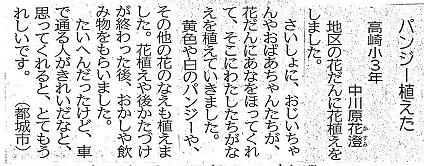 パンジー植えた
高崎小３年
中川原花澄
地区の花だんに花植えを
しました。
さいしょに、おじいちゃ
んやおばあちゃんたちが、
花だんにあなをほってくれ
て、そこにわたしたちがな
えを植えていきました。
黄色や白のパンジーや、
その他の花のなえも植えま
した。花植えや後かたづけ
が終わった後、おかしや飲
み物をもらいました。
たいへんだったけど、車
で通る人がきれいだなと、
思ってくれると、とてもう
れしいです。（都城市）